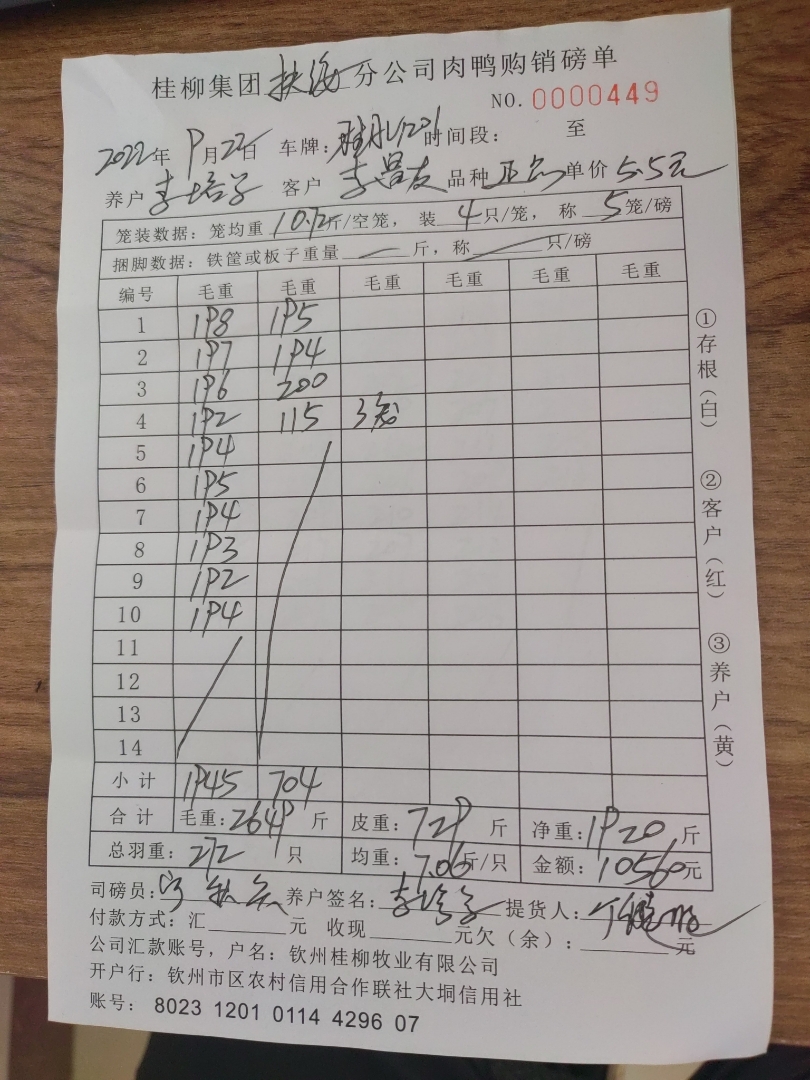 桂柳集团扶绥分公司肉鸭购销磅单
NO. 0000449
2022年 9月22日 车牌: 时间段: 至
养户 李培子 客户 李昌友 品种 单价 5.5元
笼装数据: 笼均重 10.72斤/空笼, 装 4 只/笼, 称 5 笼/磅
捆脚数据: 铁筐或板子重量 — 斤, 称 — 只/磅
编号 毛重 毛重 毛重 毛重 毛重 毛重
1 198 195
2 197 194
3 196 200
4 192 115 3笼
5 194
6 195
7 194
8 193
9 192
10 194
11
12
13
14
小计 1945 704
合计 毛重: 2649 斤 皮重: 729 斤 净重: 1920 斤
总羽重: 272 只 均重: 7.06斤/只 金额: 10560元
司磅员: 养户签名: 李培子 提货人:
付款方式: 汇 元 收现 元欠(余): 元
公司汇款账号, 户名: 钦州桂柳牧业有限公司
开户行: 钦州市区农村信用合作联社大垌信用社
账号: 8023 1201 0114 4296 07
①存根(白) ②客户(红) ③养户(黄)